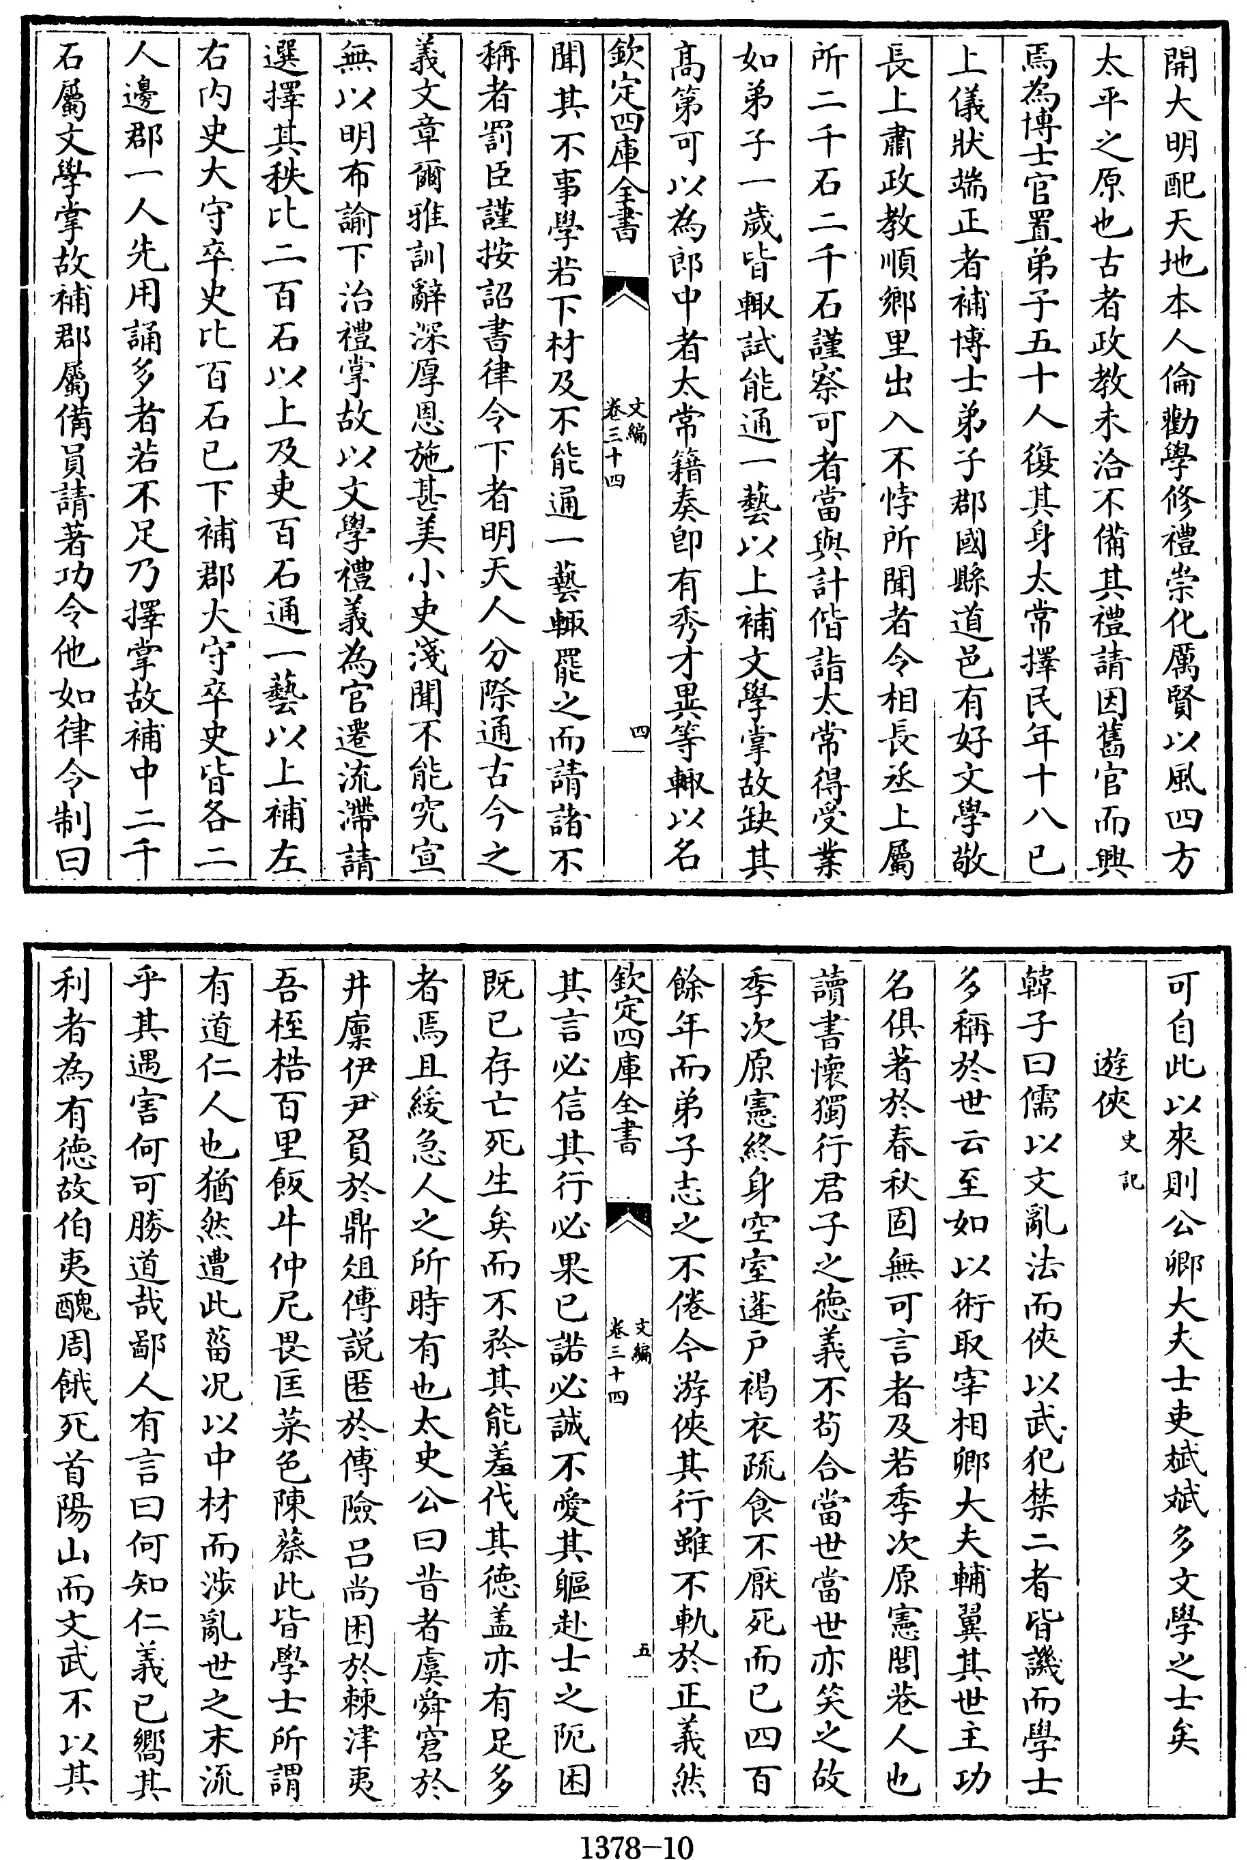 開大明配天地本人倫勸學修禮崇化厲賢以風四方
太平之原也古者政教未洽不備其禮請因舊官而興
焉為博士官置弟子五十人復其身太常擇民年十八已
上儀狀端正者補博士弟子郡國縣道邑有好文學敬
長上肅政教順鄉里出入不悖所聞者令相長丞上屬
所二千石二千石謹察可者當與計偕詣太常得受業
如弟子一歲皆輙試能通一藝以上補文學掌故缺其
髙第可以為郎中者太常籍奏即有秀才異等輙以名
欽定四庫全書
文編
卷三十四
四
聞其不事學若下材及不能通一藝輙罷之而請諸不
稱者罰臣謹按詔書律令下者明天人分際通古今之
義文章爾雅訓辭深厚恩施甚美小吏淺聞不能究宣
無以明布諭下治禮掌故以文學禮義為官遷流滯請
選擇其秩比二百石以上及吏百石通一藝以上補左
右內史大守卒史比百石已下補郡大守卒史皆各二
人邊郡一人先用誦多者若不足乃擇掌故補中二千
石屬文學掌故補郡屬備員請著功令他如律令制曰
可自此以來則公卿大夫士吏斌斌多文學之士矣
遊俠史記
韓子曰儒以文亂法而俠以武犯禁二者皆譏而學士
多稱於世云至如以術取宰相卿大夫輔翼其世主功
名俱著於春秋固無可言者及若季次原憲閭巷人也
讀書懷獨行君子之徳義不茍合當世當世亦笑之故
季次原憲終身空室蓬戶褐衣疏食不厭死而已四百
餘年而弟子志之不倦今游俠其行雖不軌於正義然
欽定四庫全書
文編
卷三十四
五
其言必信其行必果已諾必誠不愛其軀赴士之阨困
既已存亡死生矣而不矜其能羞伐其徳盖亦有足多
者焉且緩急人之所時有也太史公曰昔者虞舜窘於
井廩伊尹負於鼎俎傅說匿於傅險呂尚困於棘津夷
吾桎梏百里飯牛仲尼畏匡菜色陳蔡此皆學士所謂
有道仁人也猶然遭此菑况以中材而涉亂世之末流
乎其遇害何可勝道哉鄙人有言曰何知仁義已嚮其
利者為有徳故伯夷醜周餓死首陽山而文武不以其
1378-10